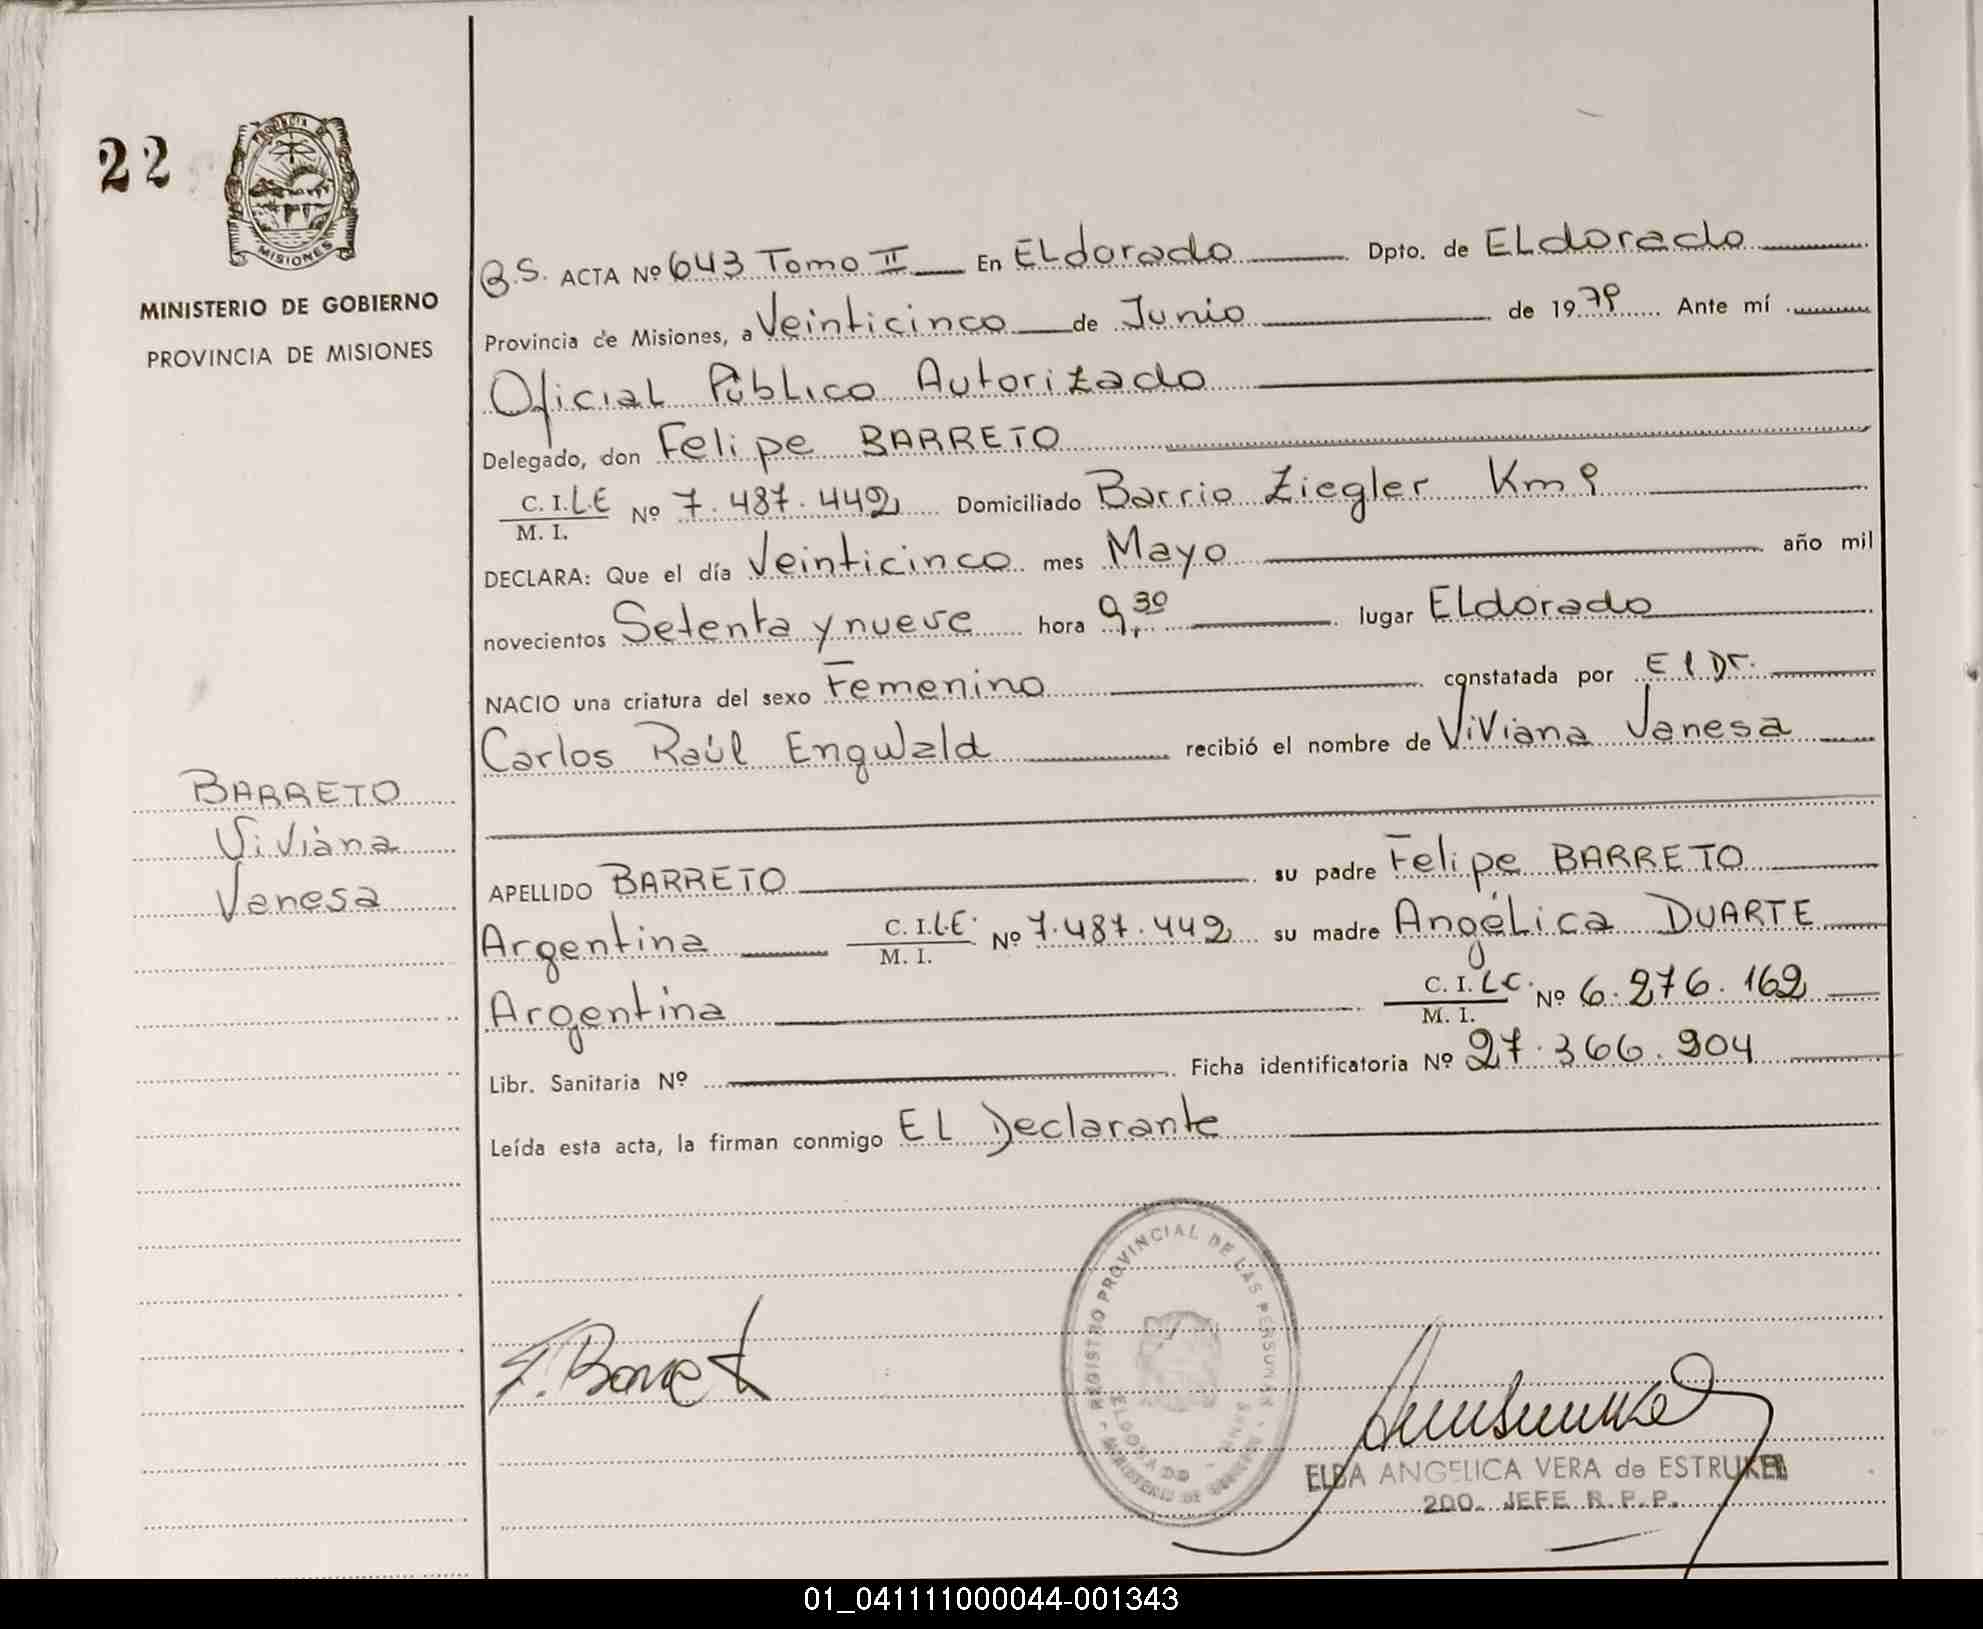 22
PROVINCIA DE
MISIONES
MINISTERIO DE GOBIERNO
PROVINCIA DE MISIONES
BARRETO
Viviana
Vanesa
B.S. ACTA Nº 643 Tomo II En ELdorado Dpto. de ELdorado
Provincia de Misiones, a Veinticinco de Junio de 1979 Ante mí
Oficial Público Autorizado
Delegado, don Felipe BARRETO
C. I. L.E Nº 7.487.442 Domiciliado Barrio Ziegler Km 9
M. I.
DECLARA: Que el día Veinticinco mes Mayo año mil
novecientos Setenta y nueve hora 9,30 lugar ELdorado
NACIO una criatura del sexo Femenino constatada por El Dr.
Carlos Raúl Engwald recibió el nombre de Viviana Vanesa
APELLIDO BARRETO su padre Felipe BARRETO
Argentina C. I. L.E. Nº 7.487.442 su madre Angélica DUARTE
M. I.
Argentina C. I. L.C. Nº 6.276.162
M. I.
Libr. Sanitaria Nº Ficha identificatoria Nº 27.366.904
Leída esta acta, la firman conmigo EL Declarante
REGISTRO PROVINCIAL DE LAS PERSONAS
ELDORADO
MINISTERIO DE
F. Barreto
ELBA ANGELICA VERA de ESTRUKEL
2DO. JEFE R.P.P.
01_041111000044-001343